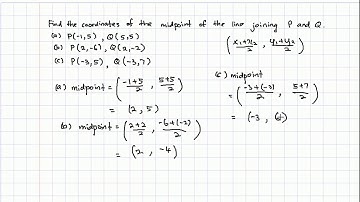 Find the coordinates of the midpoint of the line joining P and Q.
(a) P(-1,5), Q(5,5)
(b) P(2,-6), Q(2,-2)
(c) P(-3,5), Q(-3,7)
(x₁+x₂/2, y₁+y₂/2)
(a) midpoint = (-1+5/2, 5+5/2)
= (2, 5)
(b) midpoint = (2+2/2, -6+(-2)/2)
= (2, -4)
(c) midpoint
= (-3+(-3)/2, 5+7/2)
= (-3, 6)